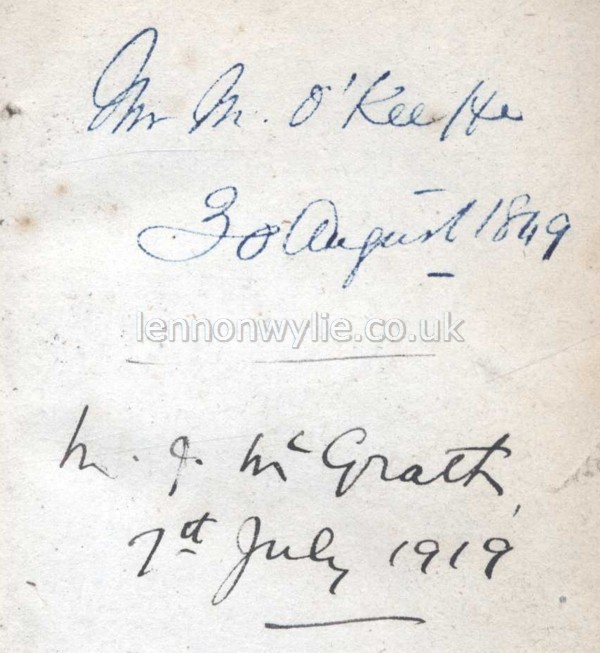 Mr M. O'Keeffe
30 August 1849
lennonwylie.co.uk
M. J. McGrath,
1st July 1919